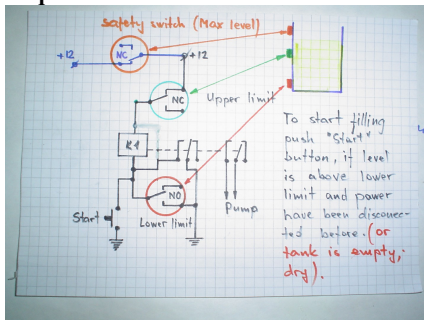 safety switch (Max level)
+12
NC
+12
NC
Upper limit
K1
Start
NO
Lower limit
Pump
To start filling
push "Start"
button, if level
is above lower
limit and power
have been disconec-
ted before. (or
tank is empty,
dry).